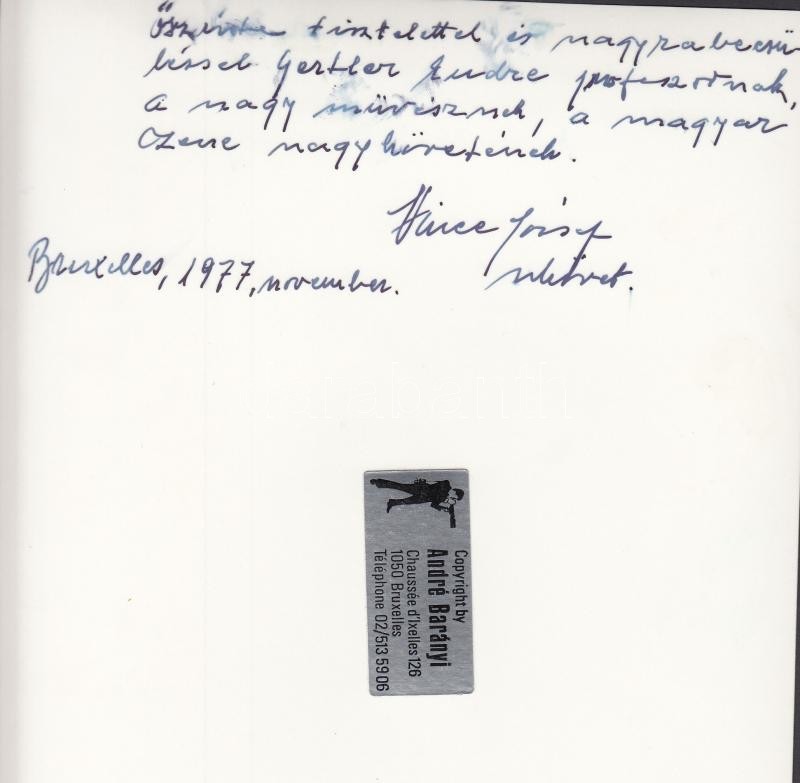 Őszinte tisztelettel és nagyrabecsü-
léssel Gertler Endre professzornak,
a nagy művésznek, a magyar
zene nagykövetének.
Vince József
nkövet.
Bruxelles, 1977, november.
Copyright by
André Barányi
Chaussée d'Ixelles 126
1050 Bruxelles
Téléphone 02/513 59 06